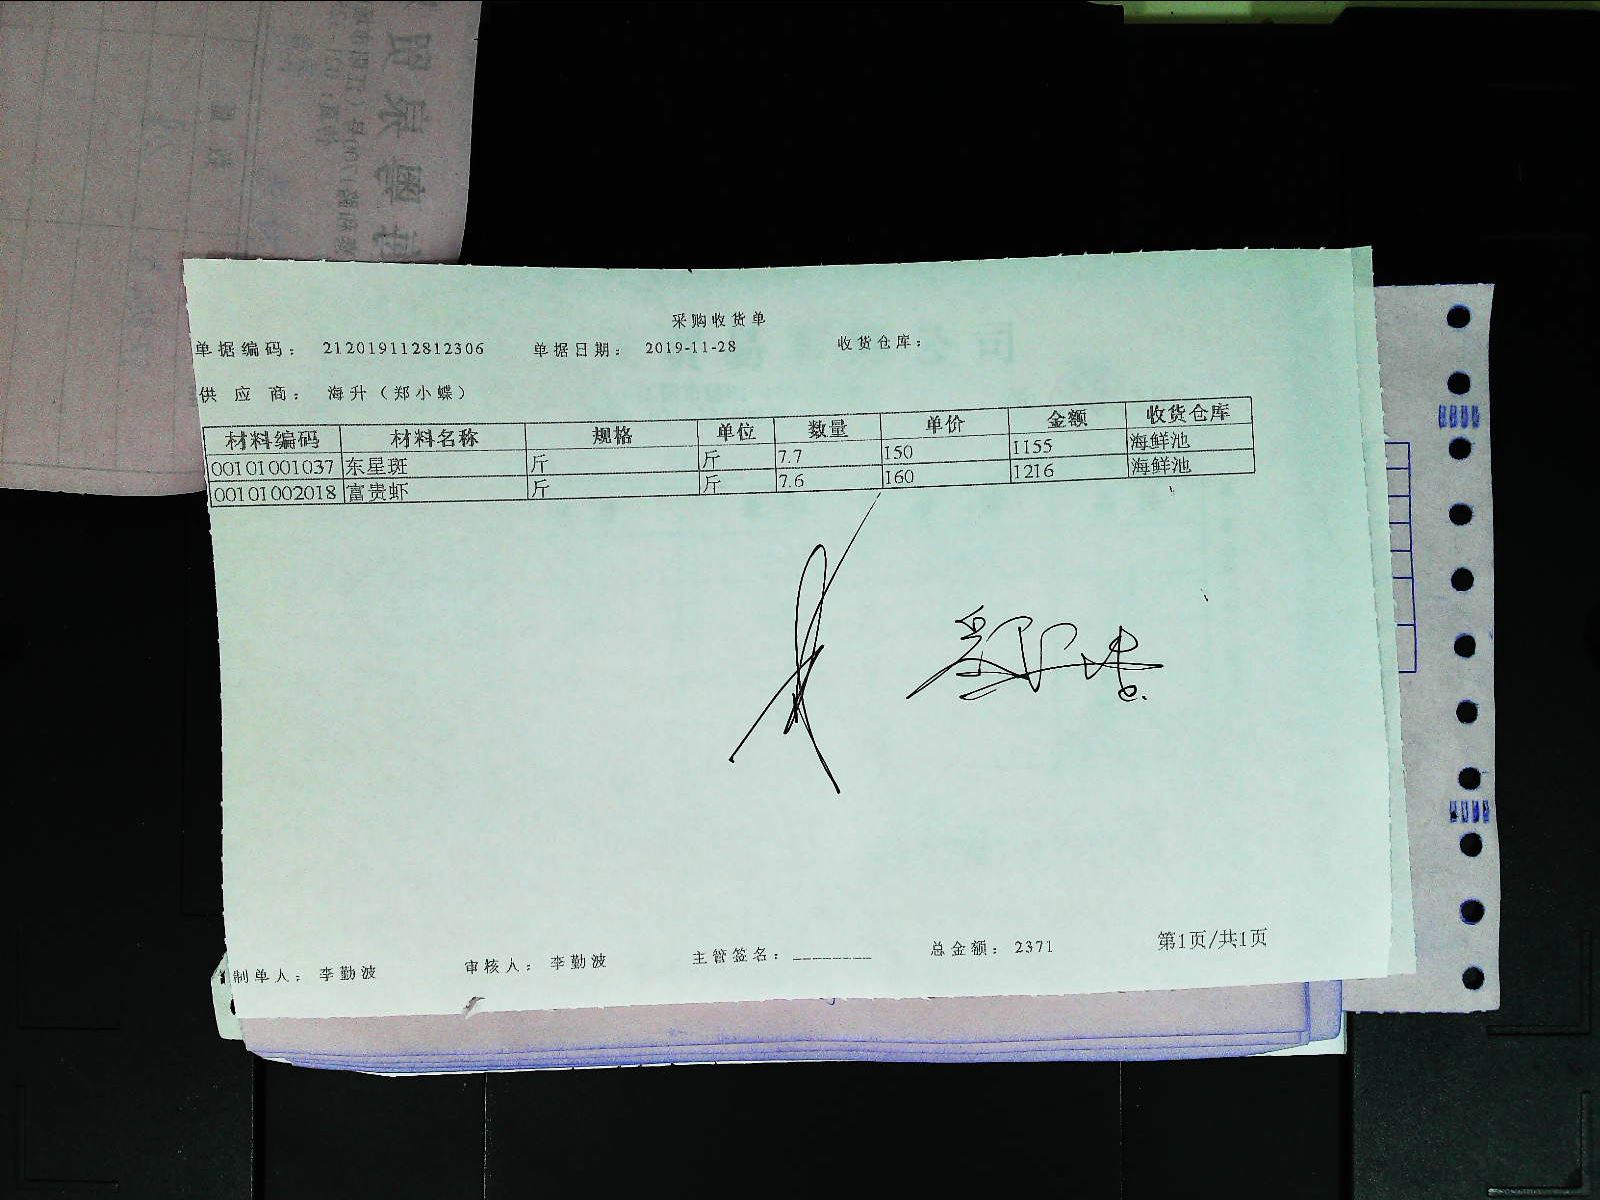 采购收货单
单据编码： 212019112812306 单据日期： 2019-11-28 收货仓库：
供应商： 海升（郑小蝶）
材料编码 材料名称 规格 单位 数量 单价 金额 收货仓库
00101001037 东星斑 斤 斤 7.7 150 1155 海鲜池
00101002018 富贵虾 斤 斤 7.6 160 1216 海鲜池
制单人： 李勤波 审核人： 李勤波 主管签名：________ 总金额： 2371 第1页/共1页